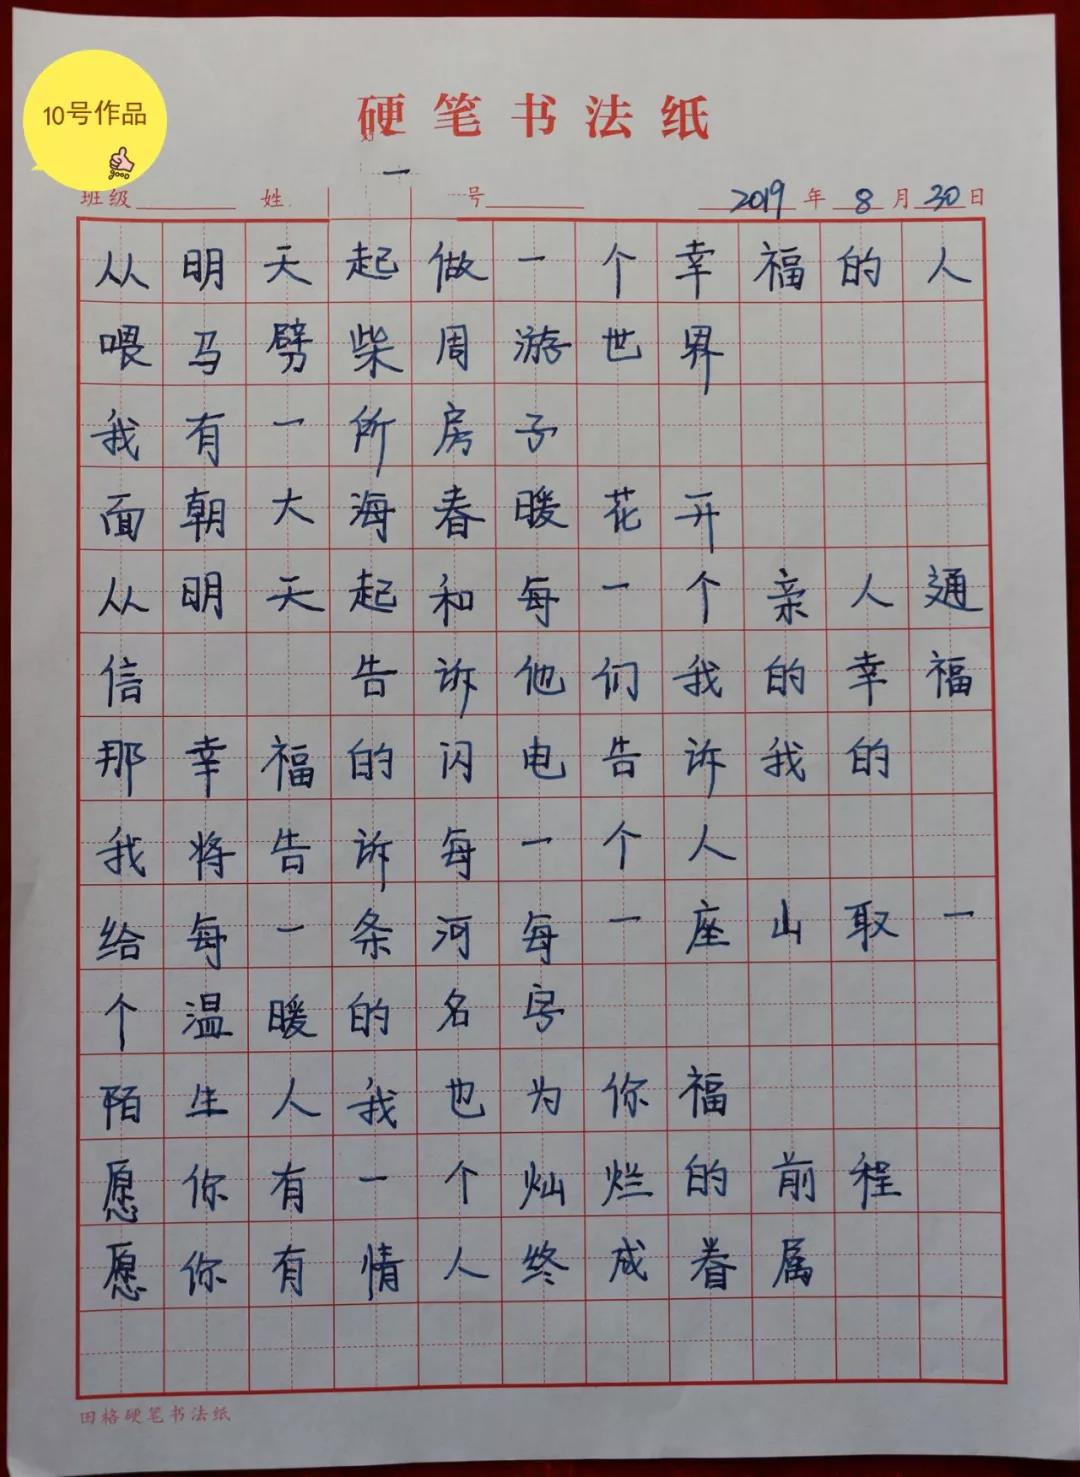 10号作品
硬笔书法纸
班级 姓 号 2019年8月30日
从明天起做一个幸福的人
喂马劈柴周游世界
我有一所房子
面朝大海春暖花开
从明天起和每一个亲人通
信 告诉他们我的幸福
那幸福的闪电告诉我的
我将告诉每一个人
给每一条河每一座山取一
个温暖的名字
陌生人我也为你福
愿你有一个灿烂的前程
愿你有情人终成眷属
田格硬笔书法纸